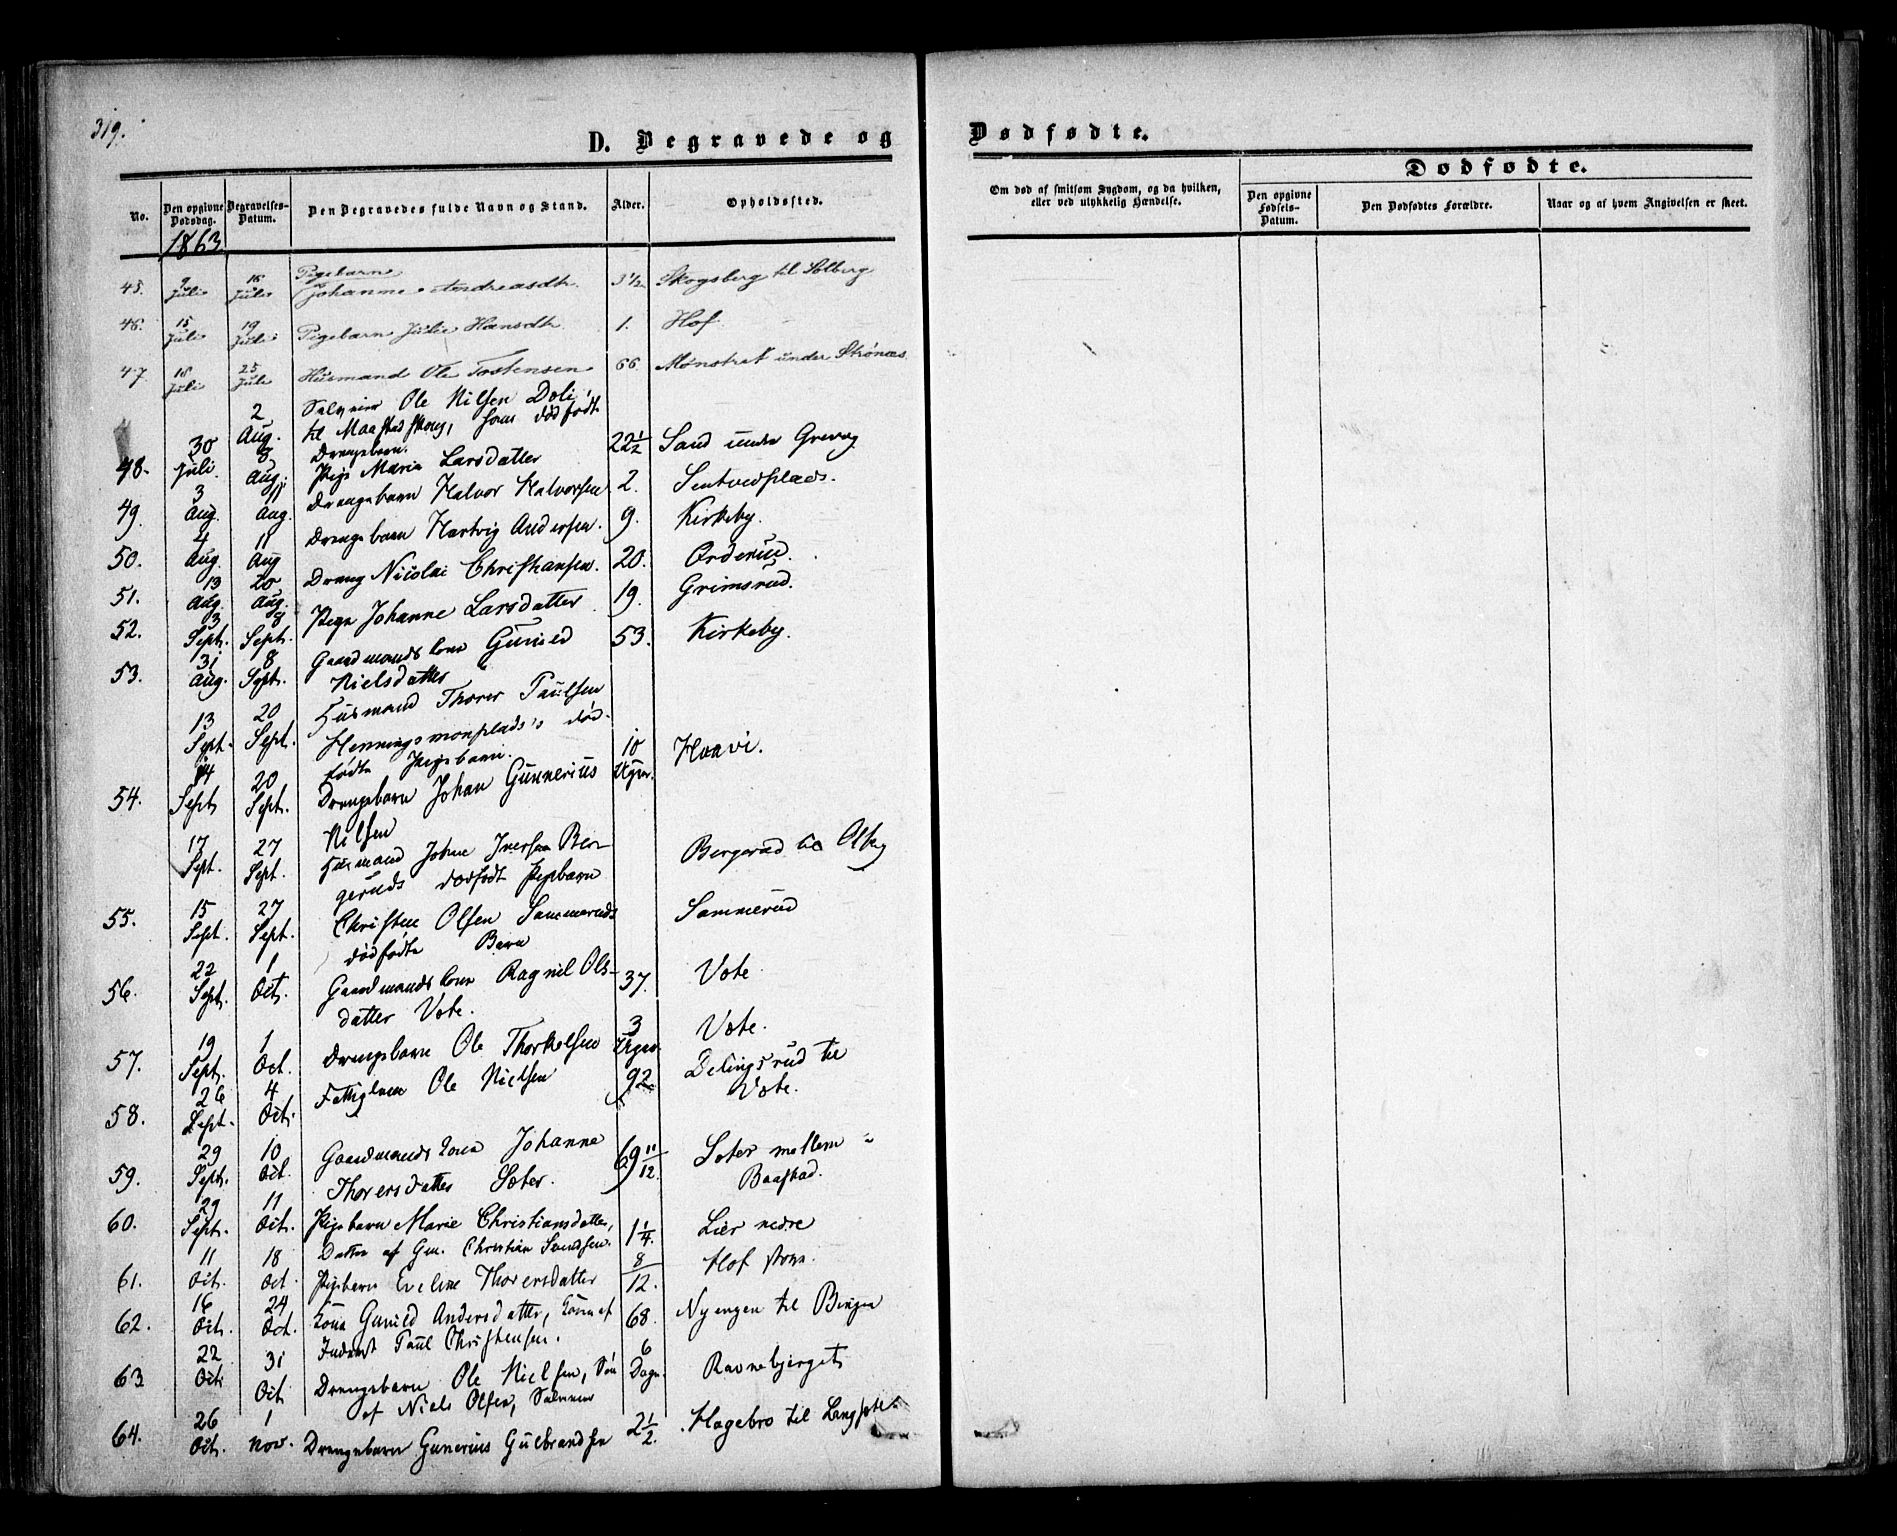 319.
D. Begravede og
Dødfødte.
No.
Den opgivne Dødsdag.
Begravelses-Datum.
Den Begravedes fulde Navn og Stand.
Alder.
Opholdssted.
Om død af smitsom Sygdom, og da hvilken,
eller ved ulykkelig Hændelse.
Dødfødte.
Den opgivne Fødsels-Datum.
Den Dødfødtes Forældre.
Naar og af hvem Angivelsen er skeet.
1863
45. 9 Juli 16 Juli Pigebarn Johanne Andreasdtr. 3 1/2 Skogsberg til Solberg
46. 15 Juli 19 Juli Pigebarn Julie Hansdtr. 1. Hof
47 18 Juli 25 Juli Husmand Ole Tostensen 66 Mønstret under Strønæs
2 Aug. Ole Nilsen Doli,
til Maastad skov, hans dødfødt
Drengebarn.
48. 30 Juli 8 Aug. Pige Maria Larsdatter 22 1/2 Sand under Grevog
49. 3 Aug. 11 Aug. Drengebarn Halvor Halvorsen 2. Sentvedplads.
50. 4 Aug. 11 Aug Drengebarn Hartvig Andersen. 9. Kirkeby.
51. 13 Aug. 20 Aug. Dreng Nicolai Christiansen. 20. Orderud.
52. 3 Sept. 8 Sept. Pige Johanne Larsdatter 19. Grimsrud.
53. 31 Aug. 8 Sept. Gaardmandskone Gunild
Nielsdatter 53. Kirkeby.
13 Sept. 20 Sept. Husmand Thorer Paulsen
Henningsmonplads's død-
fødte Pigebarn.
54. 14 Sept. 20 Sept. Drengebarn Johan Gunnerius
Nilsen 10 Uger. Haavi.
17 Sept. 27 Sept. Husmand Johan Iversen Ber-
geruds dødfødt Pigebarn Bergerud
55. 15 Sept. 27 Sept. Christen Olsen Sammeruds
dødfødte Barn Sammerud
56. 22 Sept. 1 Oct. Gaardmandskone Ragnil Ols-
datter Vote. 37. Vote
57. 19 Sept. 1 Oct. Drengebarn Ole Thorkelsen 3 Uger. Vote.
58. 26 Sept. 4 Oct. Fattiglem Ole Nielsen 92. Delingsrud til
Vote.
59. 29 Sept. 10 Oct. Gaardmandskone Johanne
Thorersdatter Soter. 69 11/12. Soter mellem
Baastad.
60. 29 Sept. 11 Oct. Pigebarn Marie Christiansdatter,
Datter af Gm. Christian 1 1/4. Lier nedre
61. 11 Oct. 18 Oct. Pigebarn Eveline Thorersdatter 8/12. Hof store.
62. 16 Oct. 24 Oct. Kone Gunild Andersdatter, Kone af
Inderst Paul Christensen. 68. Nyengen til Bingen
63 22 Oct. 31 Oct. Drengebarn Ole Nielsen, Søn
af Niels Olsen, 6 Dage. Ravnebjerget
64. 26 Oct. 1 Nov. Drengebarn Gunerius Gulbrandsen 2 1/2. Hagebro til